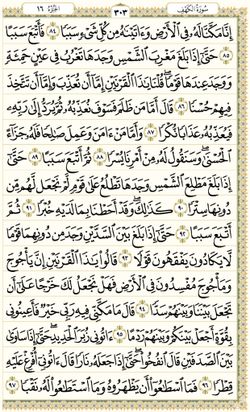 الجزء ١٦ ٣٠٣ سورة الكهف
إِنَّا مَكَّنَّا لَهُ فِي الْأَرْضِ وَءَاتَيْنَٰهُ مِن كُلِّ شَيْءٍ سَبَبًا ٨٤ فَأَتْبَعَ سَبَبًا
٨٥ حَتَّىٰ إِذَا بَلَغَ مَغْرِبَ الشَّمْسِ وَجَدَهَا تَغْرُبُ فِي عَيْنٍ حَمِئَةٍ
وَوَجَدَ عِندَهَا قَوْمًا قُلْنَا يَٰذَا الْقَرْنَيْنِ إِمَّا أَن تُعَذِّبَ وَإِمَّا أَن تَتَّخِذَ
فِيهِمْ حُسْنًا ٨٦ قَالَ أَمَّا مَن ظَلَمَ فَسَوْفَ نُعَذِّبُهُ ثُمَّ يُرَدُّ إِلَىٰ رَبِّهِ
فَيُعَذِّبُهُ عَذَابًا نُّكْرًا ٨٧ وَأَمَّا مَنْ ءَامَنَ وَعَمِلَ صَٰلِحًا فَلَهُ جَزَاءً
الْحُسْنَىٰ وَسَنَقُولُ لَهُ مِنْ أَمْرِنَا يُسْرًا ٨٨ ثُمَّ أَتْبَعَ سَبَبًا ٨٩ حَتَّىٰ
إِذَا بَلَغَ مَطْلِعَ الشَّمْسِ وَجَدَهَا تَطْلُعُ عَلَىٰ قَوْمٍ لَّمْ نَجْعَل لَّهُم مِّن
دُونِهَا سِتْرًا ٩٠ كَذَٰلِكَ وَقَدْ أَحَطْنَا بِمَا لَدَيْهِ خُبْرًا ٩١ ثُمَّ
أَتْبَعَ سَبَبًا ٩٢ حَتَّىٰ إِذَا بَلَغَ بَيْنَ السَّدَّيْنِ وَجَدَ مِن دُونِهِمَا قَوْمًا
لَّا يَكَادُونَ يَفْقَهُونَ قَوْلًا ٩٣ قَالُوا يَٰذَا الْقَرْنَيْنِ إِنَّ يَأْجُوجَ
وَمَأْجُوجَ مُفْسِدُونَ فِي الْأَرْضِ فَهَلْ نَجْعَلُ لَكَ خَرْجًا عَلَىٰ أَن
تَجْعَلَ بَيْنَنَا وَبَيْنَهُمْ سَدًّا ٩٤ قَالَ مَا مَكَّنِّي فِيهِ رَبِّي خَيْرٌ فَأَعِينُونِي
بِقُوَّةٍ أَجْعَلْ بَيْنَكُمْ وَبَيْنَهُمْ رَدْمًا ٩٥ ءَاتُونِي زُبَرَ الْحَدِيدِ حَتَّىٰ إِذَا سَاوَىٰ
بَيْنَ الصَّدَفَيْنِ قَالَ انفُخُوا حَتَّىٰ إِذَا جَعَلَهُ نَارًا قَالَ ءَاتُونِي أُفْرِغْ عَلَيْهِ
قِطْرًا ٩٦ فَمَا اسْطَٰعُوا أَن يَظْهَرُوهُ وَمَا اسْتَطَٰعُوا لَهُ نَقْبًا ٩٧